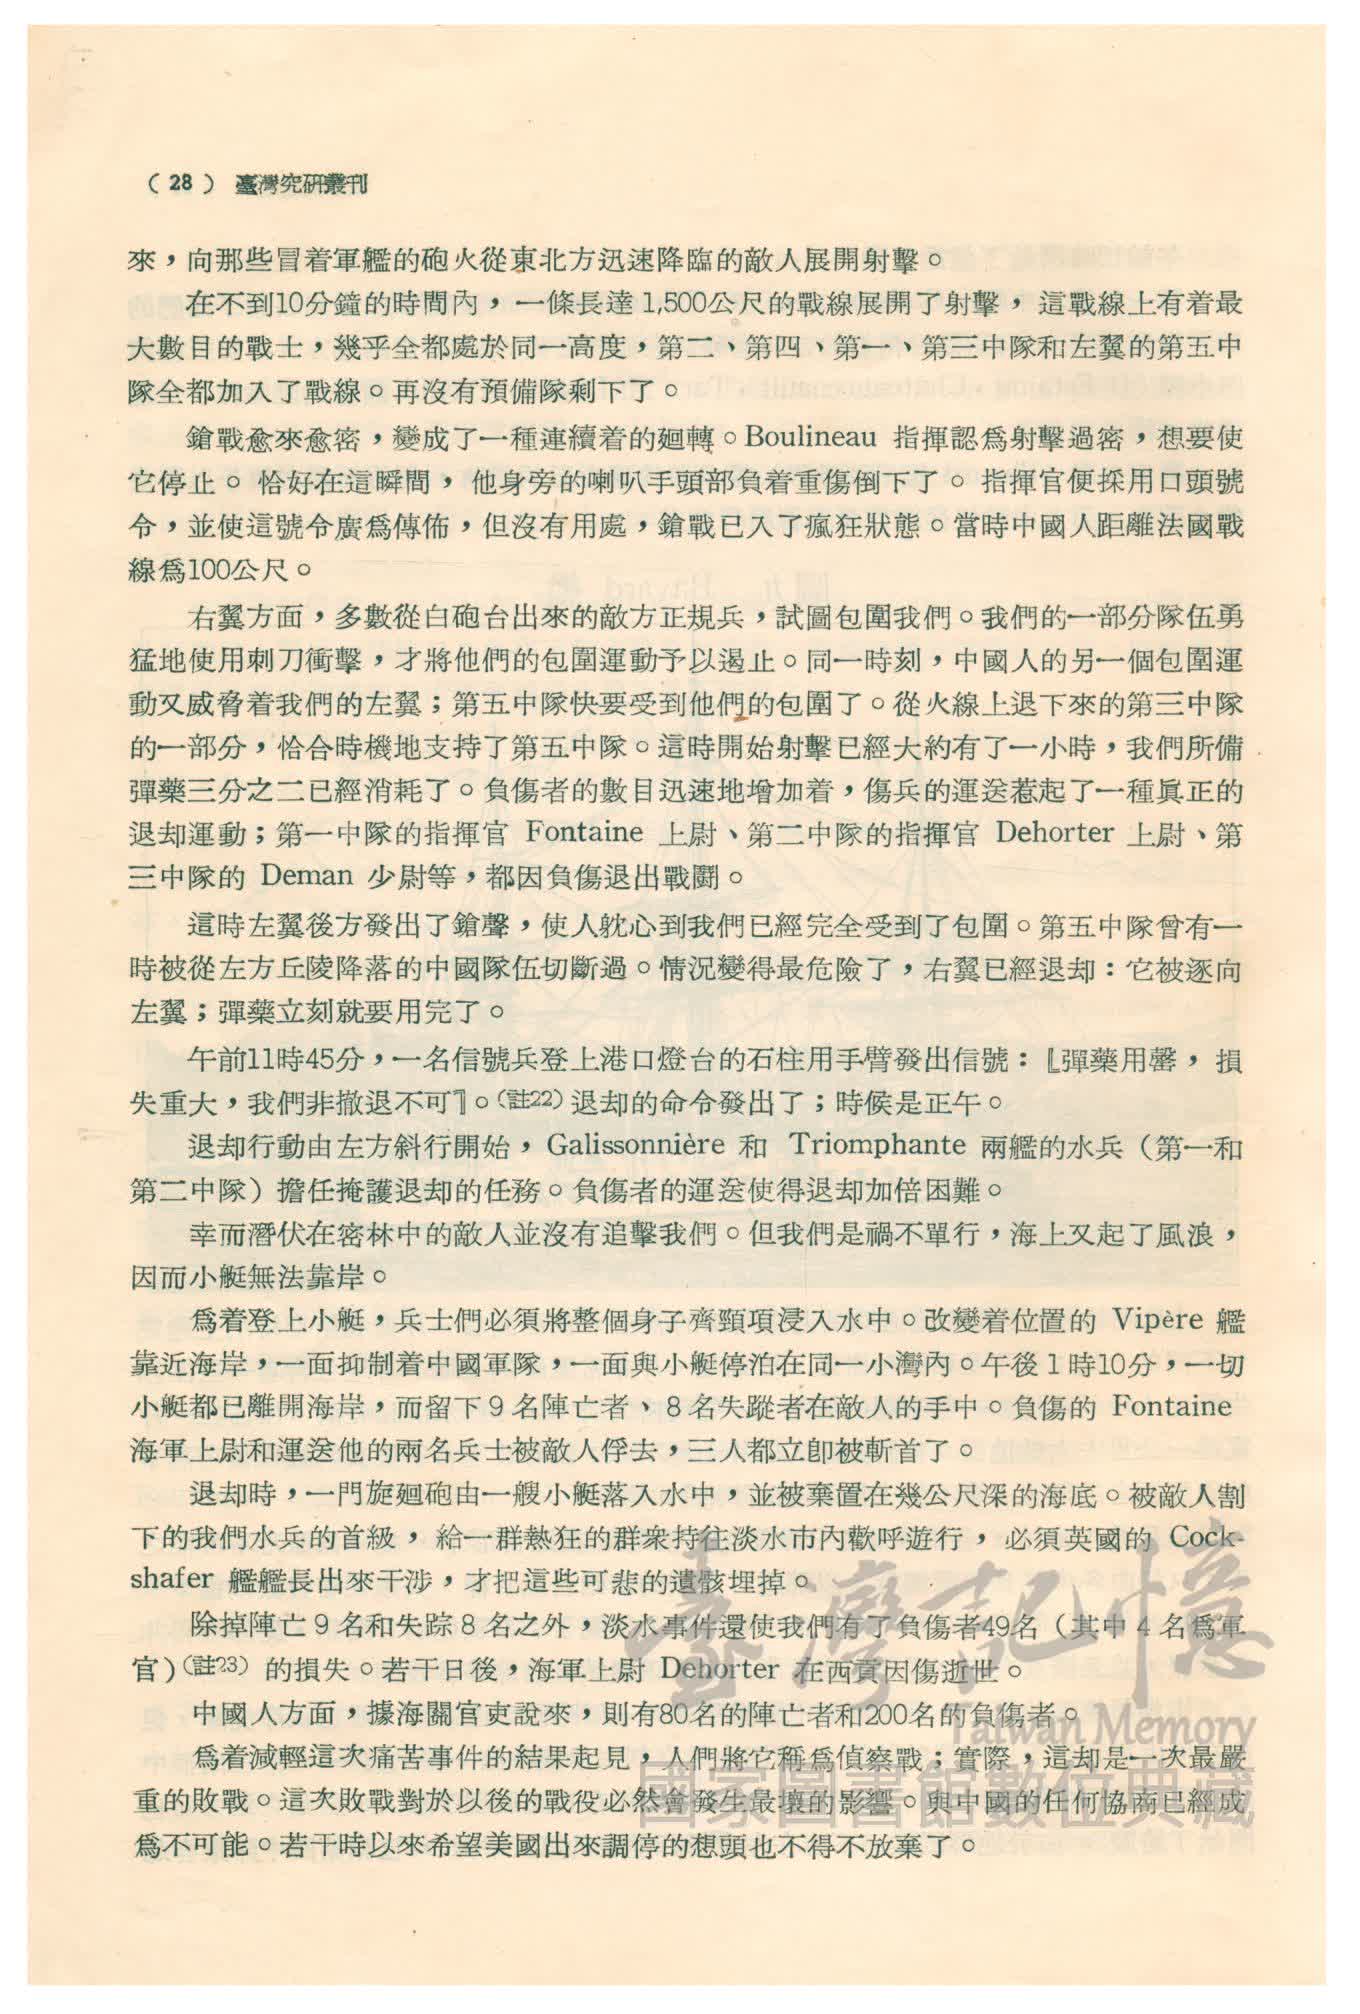 （28） 臺灣究研叢刊
來，向那些冒着軍艦的砲火從東北方迅速降臨的敵人展開射擊。
在不到10分鐘的時間內，一條長達 1,500公尺的戰線展開了射擊， 這戰線上有着最
大數目的戰士，幾乎全都處於同一高度，第二、第四、第一、第三中隊和左翼的第五中
隊全都加入了戰線。再沒有預備隊剩下了。
鎗戰愈來愈密，變成了一種連續着的廻轉。Boulineau 指揮認爲射擊過密，想要使
它停止。 恰好在這瞬間， 他身旁的喇叭手頭部負着重傷倒下了。 指揮官便採用口頭號
令，並使這號令廣爲傳佈，但沒有用處，鎗戰已入了瘋狂狀態。當時中國人距離法國戰
線爲100公尺。
右翼方面，多數從白砲台出來的敵方正規兵，試圖包圍我們。我們的一部分隊伍勇
猛地使用刺刀衝擊，才將他們的包圍運動予以遏止。同一時刻，中國人的另一個包圍運
動又威脅着我們的左翼；第五中隊快要受到他們的包圍了。從火線上退下來的第三中隊
的一部分，恰合時機地支持了第五中隊。這時開始射擊已經大約有了一小時，我們所備
彈藥三分之二已經消耗了。負傷者的數目迅速地增加着，傷兵的運送惹起了一種眞正的
退却運動；第一中隊的指揮官 Fontaine 上尉、第二中隊的指揮官 Dehorter 上尉、第
三中隊的 Deman 少尉等，都因負傷退出戰鬪。
這時左翼後方發出了鎗聲，使人躭心到我們已經完全受到了包圍。第五中隊曾有一
時被從左方丘陵降落的中國隊伍切斷過。情況變得最危險了，右翼已經退却：它被逐向
左翼；彈藥立刻就要用完了。
午前11時45分，一名信號兵登上港口燈台的石柱用手臂發出信號：『彈藥用罄， 損
失重大，我們非撤退不可』。(註22) 退却的命令發出了；時候是正午。
退却行動由左方斜行開始，Galissonnière 和 Triomphante 兩艦的水兵（第一和
第二中隊）擔任掩護退却的任務。負傷者的運送使得退却加倍困難。
幸而潛伏在密林中的敵人並沒有追擊我們。但我們是禍不單行，海上又起了風浪，
因而小艇無法靠岸。
爲着登上小艇，兵士們必須將整個身子齊頸項浸入水中。改變着位置的 Vipère 艦
靠近海岸，一面抑制着中國軍隊，一面與小艇停泊在同一小灣內。午後1時10分，一切
小艇都已離開海岸，而留下9名陣亡者、8名失蹤者在敵人的手中。負傷的 Fontaine
海軍上尉和運送他的兩名兵士被敵人俘去，三人都立卽被斬首了。
退却時，一門旋廻砲由一艘小艇落入水中，並被棄置在幾公尺深的海底。被敵人割
下的我們水兵的首級， 給一群熱狂的群衆持往淡水市內歡呼遊行， 必須英國的 Cock-
shafer 艦艦長出來干涉，才把這些可悲的遺骸埋掉。
除掉陣亡9名和失踪8名之外，淡水事件還使我們有了負傷者49名（其中4名爲軍
官）(註23) 的損失。若干日後，海軍上尉 Dehorter 在西貢因傷逝世。
中國人方面，據海關官吏說來，則有80名的陣亡者和200名的負傷者。
爲着減輕這次痛苦事件的結果起見，人們將它稱爲偵察戰；實際，這却是一次最嚴
重的敗戰。這次敗戰對於以後的戰役必然會發生最壞的影響。與中國的任何協商已經成
爲不可能。若干時以來希望美國出來調停的想頭也不得不放棄了。
臺灣記憶
Taiwan Memory
國家圖書館數位典藏